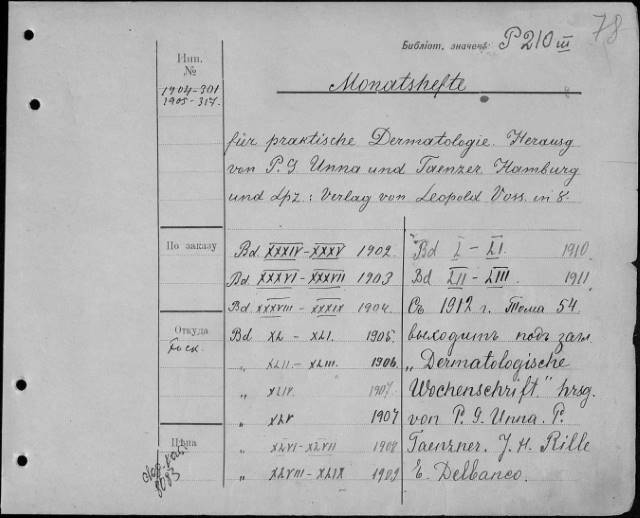 78
Библіот. значенѣ P 210 III
Инв.
№
1904-301
1905-317.
Monatshefte
für praktische Dermatologie. Herausg
von P. G Unna und Taenzer. Hamburg
und Lpz.: Verlag von Leopold Voss. in 8.
По заказу
Bd XXXIV - XXXV 1902.
Bd XXXVI - XXXVII 1903
Bd XXXVIII - XXXIX 1904.
Bd XL - XLI. 1905.
„ XLII. - XLIII. 1906.
„ XLIV. 1907.
„ XLV 1907
„ XLVI - XLVII 1908
„ XLVIII - XLIX 1909
Bd L - LI. 1910.
Bd LII - LIII 1911.
Съ 1912 г. Тома 54.
выходитъ подъ загл.
„Dermatologische
Wochenschrift." hrsg.
von P. G. Unna. P.
Taenzner. J. H. Rille
E. Delbanco.
Откуда
Цѣна
8083